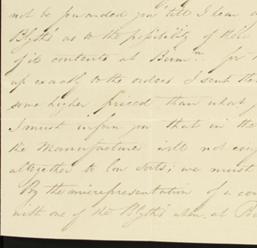 not be forwarded you till I hear
Blyths as to the possibility of their
of its contents at Birmm. for
up exactly to the orders I sent the
some higher priced than what
I must inform you that in the
the Manufacturers will not con
altogether to low sorts; we must
By the misrepresentation of a
with one of the Blyths when at